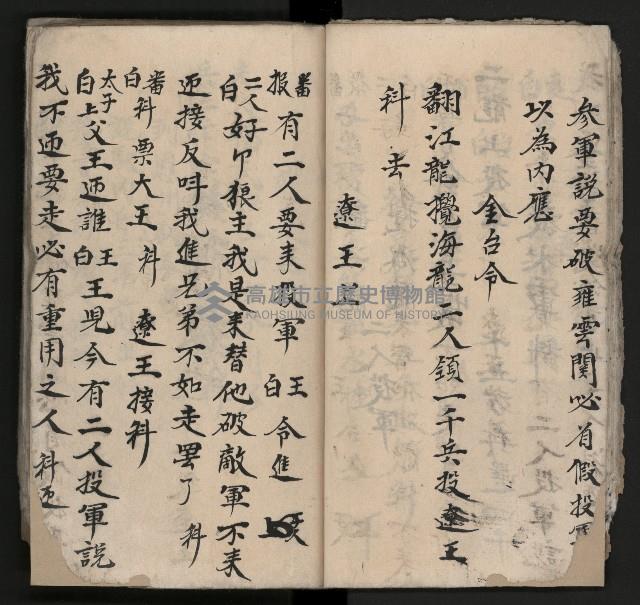 参軍説要破雍雲関必有假投
以為内應
金台令
翻江龍攪海龍二人領一千兵投遼王
科去
遼王
番报有二人要来投軍 王白 令進
二人白好卬狼主我是来替他破敵軍不来
迊接反呌我進兄弟不如走罢了 科
番白科票大王 科 遼王接科
太子白上父王迊誰 王白 王児今有二人投軍説
我不迊要走必有重用之人 科迊
高雄市立歷史博物館
KAOHSIUNG MUSEUM OF HISTORY